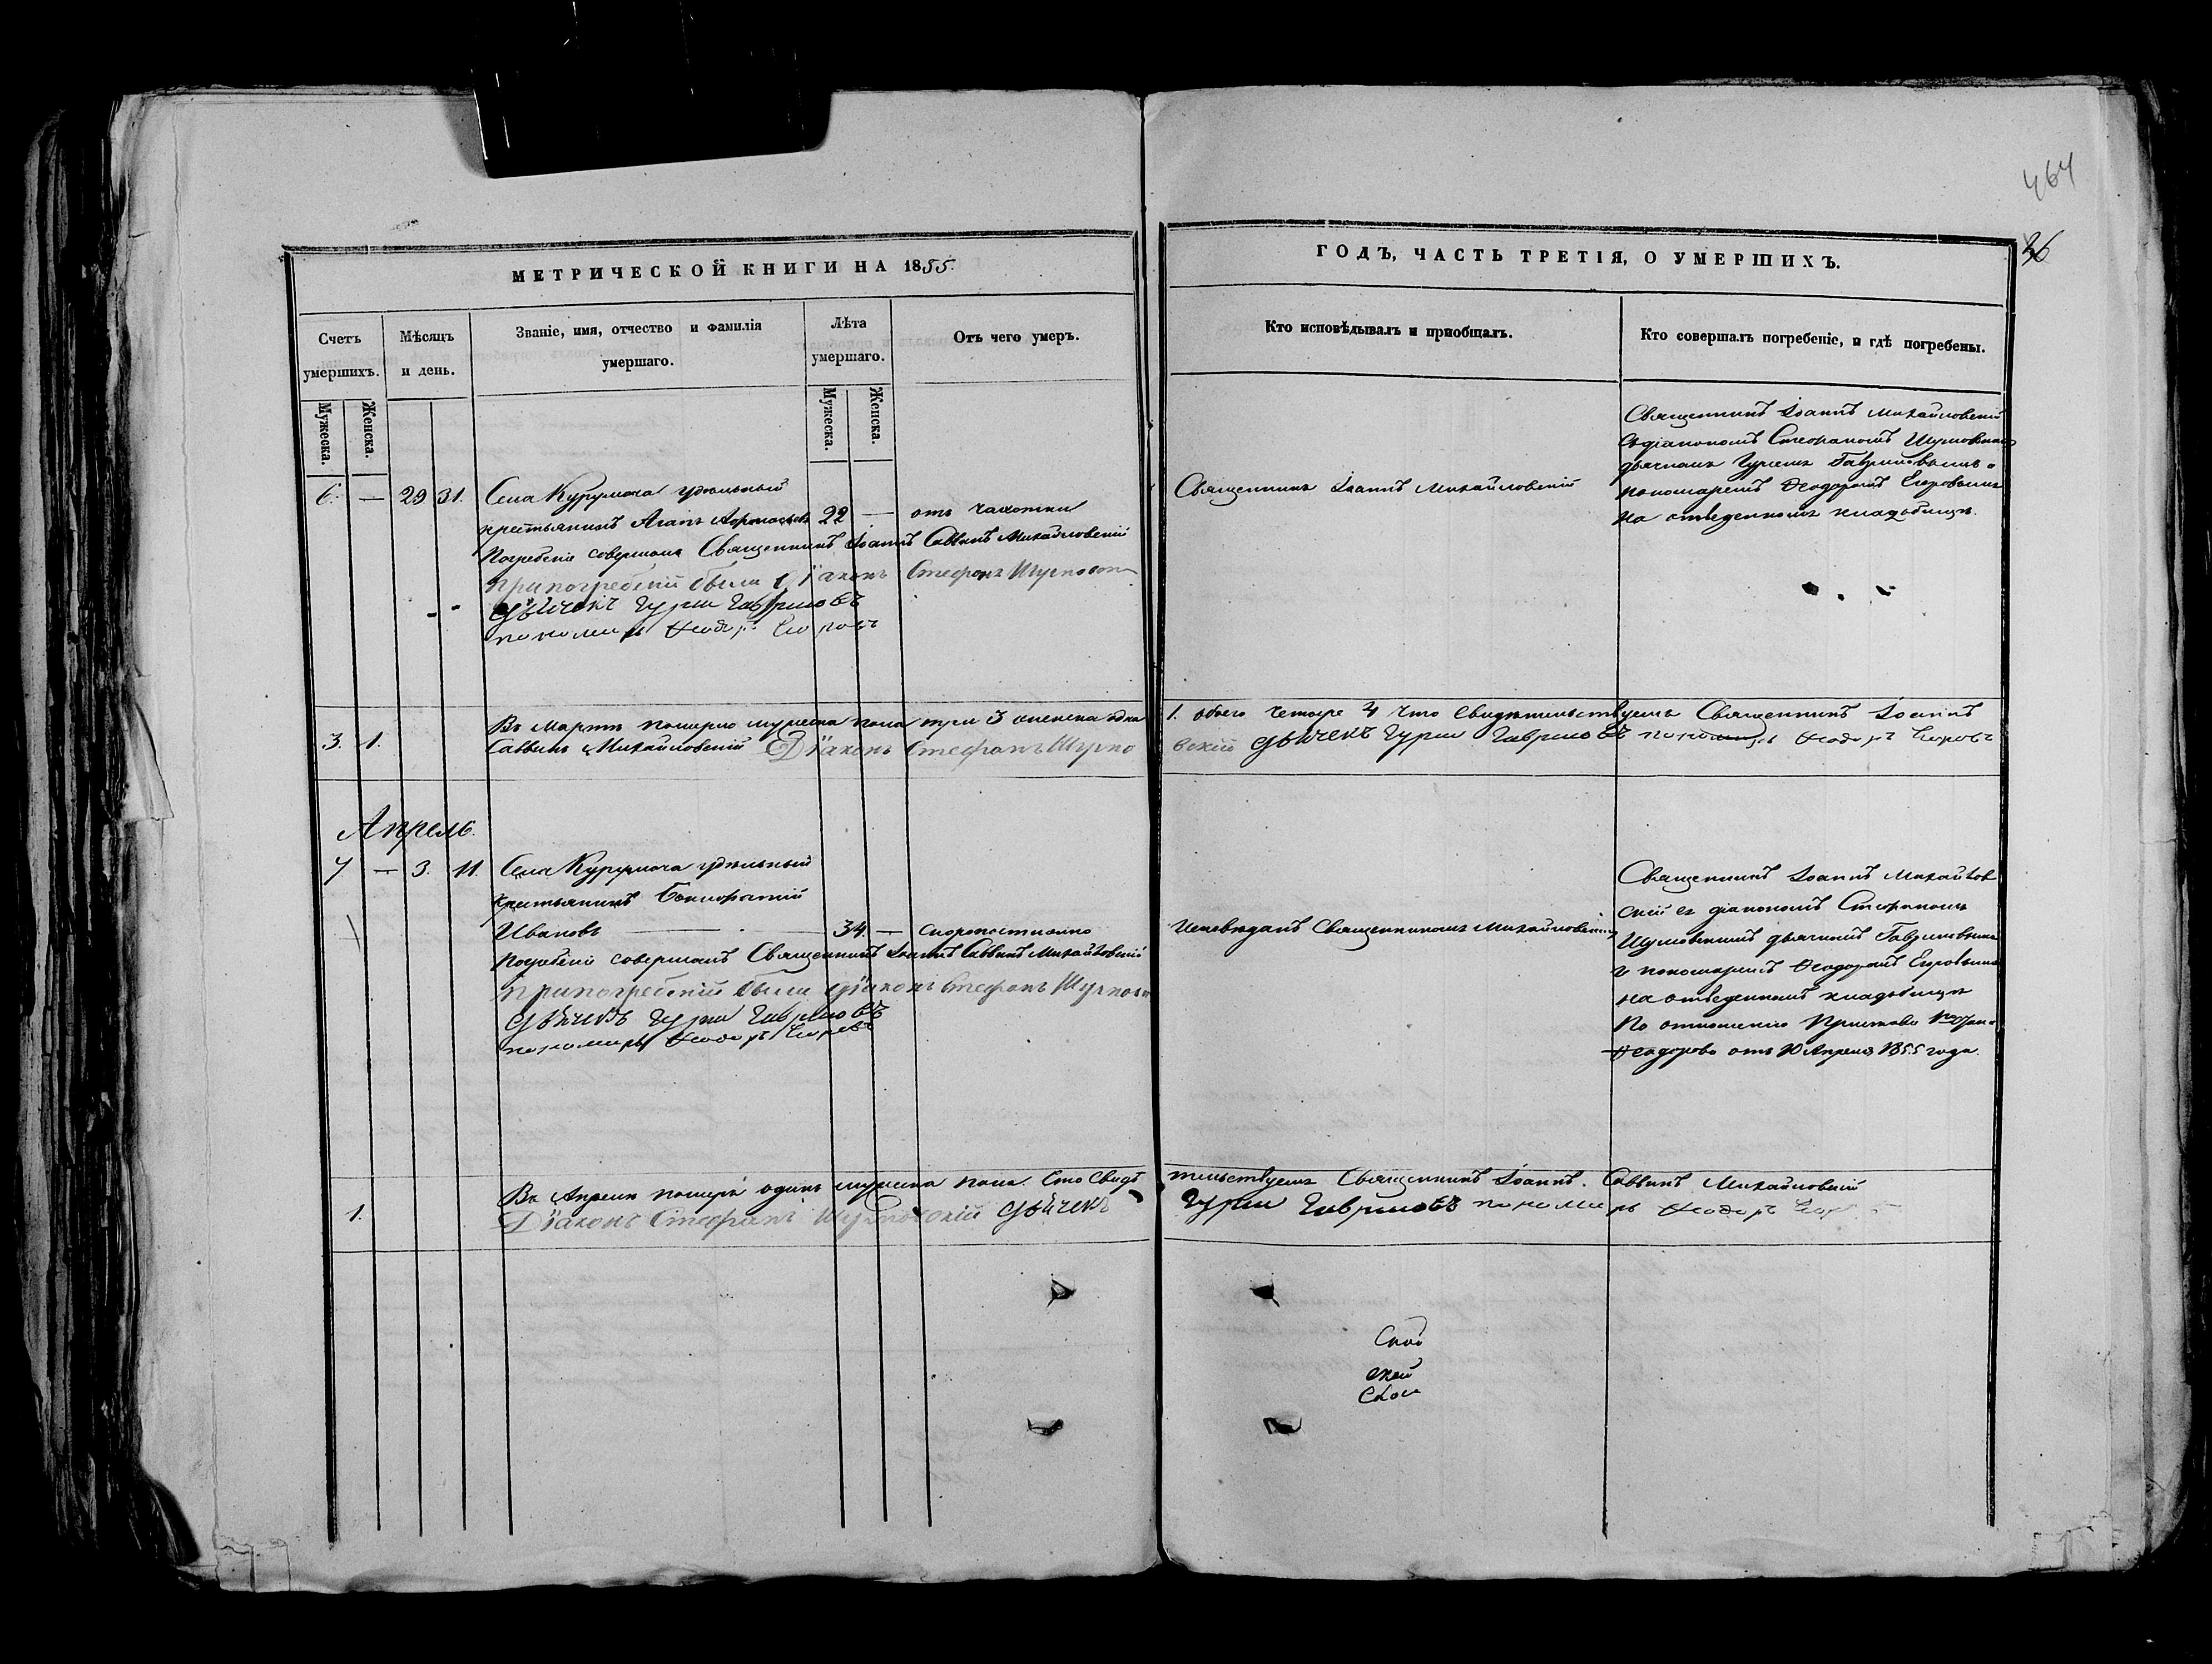 464
26
МЕТРИЧЕСКОЙ КНИГИ НА 1855.
ГОДЪ, ЧАСТЬ ТРЕТІЯ, О УМЕРШИХЪ.
Счетъ умершихъ.
Мѣсяцъ и день.
Званіе, имя, отчество и фамилія умершаго.
Лѣта умершаго.
Отъ чего умеръ.
Кто исповѣдывалъ и приобщалъ.
Кто совершалъ погребеніе, и гдѣ погребены.
Мужеска.
Женска.
Мужеска.
Женска.
6. — 29 31. Села Курумоча удѣльный
крестьянинъ Агапъ 22 — отъ чахотки
Погребеніе совершалъ Священникъ Іоаннъ Саввинъ Михайловскій
при погребеніи были Діаконъ Стефанъ
дьячекъ Гурій Гавриловъ
пономарь Ѳеодоръ Егоровъ
Священникъ Іоаннъ Михайловскій
Священникъ Іоаннъ Михайловскій
съ діакономъ Стефаномъ
дьячкомъ Гуріемъ Гавриловымъ
пономаремъ Ѳеодоромъ Егоровымъ
на отведенномъ кладбищѣ.
Въ Мартѣ померло мужеска пола три 3 женска одна 1. обоего четыре 4 что свидѣтельствуемъ Священникъ Іоаннъ
3. 1. Саввинъ Михайловскій Діаконъ Стефанъ дьячекъ Гурій Гавриловъ пономарь Ѳеодоръ Егоровъ
Апрель.
7 — 3. 11. Села Курумоча удѣльный
крестьянинъ
Ивановъ — 34. — скоропостижно
Погребеніе совершалъ Священникъ Іоаннъ Саввинъ Михайловскій
при погребеніи были діаконъ Стефанъ
дьячекъ Гурій Гавриловъ
пономарь Ѳеодоръ Егоровъ
Исповѣданъ Священникомъ Михайловскимъ
Священникъ Іоаннъ Михайлов
скій съ діакономъ Стефаномъ
дьячкомъ Гавриловымъ
и пономаремъ Ѳеодоромъ Егоровымъ
на отведенномъ кладбищѣ
По отношенію Пристава
Ѳеодорова отъ 10 Апреля 1855 года.
Въ Апреле померъ одинъ мужеска пола. Сто свидѣтельствуемъ Священникъ Іоаннъ. Саввинъ Михайловскій
1. Діаконъ Стефанъ дьячекъ Гурій Гавриловъ пономарь Ѳеодоръ